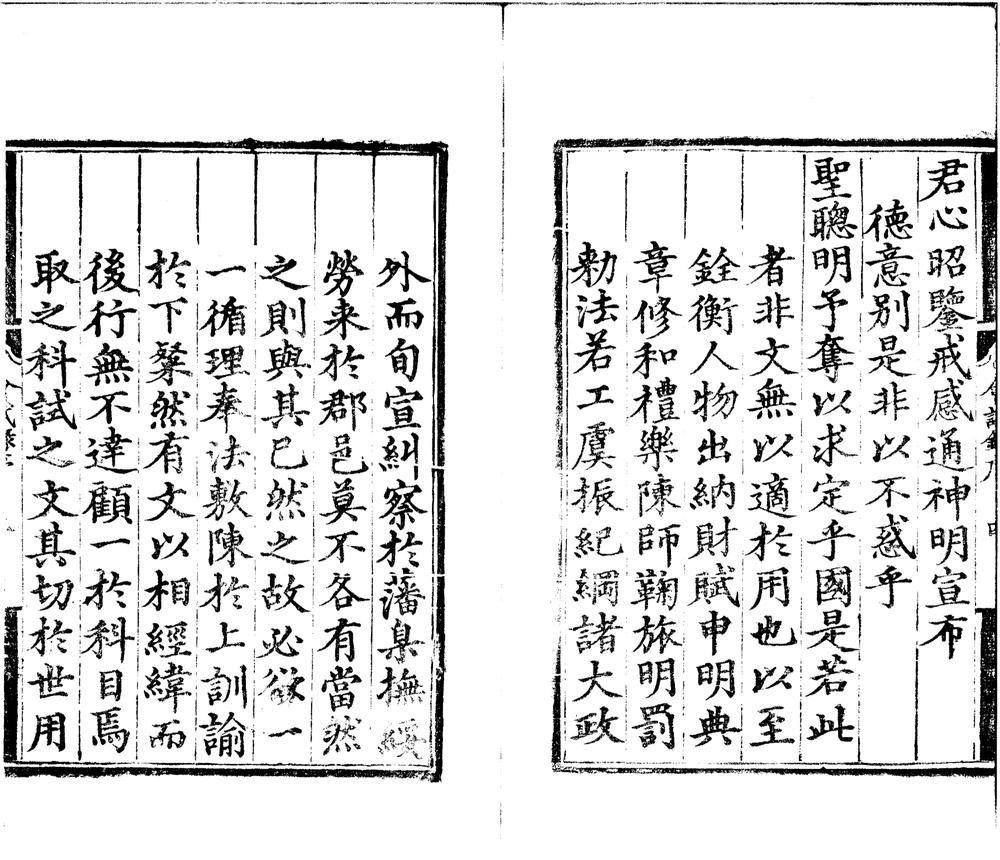 君心昭鑒戒感通神明宣布
德意别是非以不惑乎
聖聰明予奪以求定乎國是若此
者非文無以適於用也以至
銓衡人物出納財賦申明典
章修和禮樂陳師鞠旅明罰
勅法若工虞振紀綱諸大政
外而旬宣糾察於藩臬撫綏
勞来於郡邑莫不各有當然
之則與其已然之故必欲一
一循理奉法敷陳於上訓諭
於下粲然有文以相經緯而
後行無不達顧一於科目焉
取之科試之文其切於世用